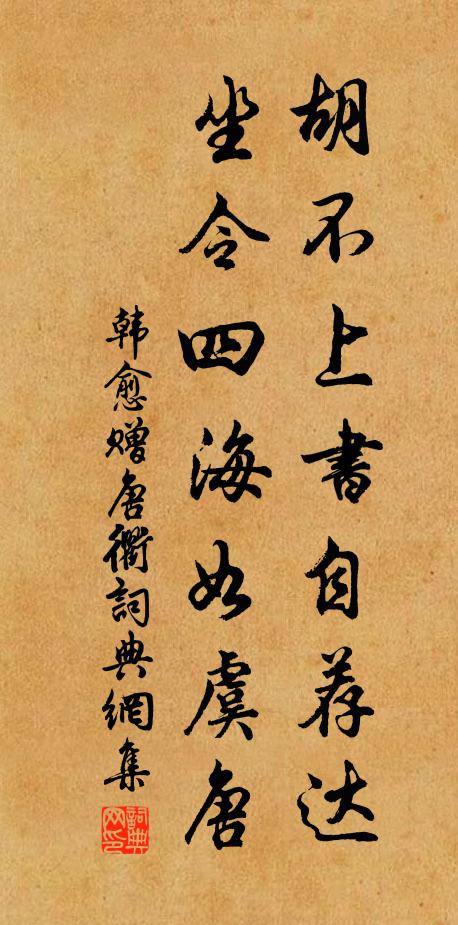 胡不上書自荐达
坐令四海如虞唐
韩愈赠唐衢詞典網集
詞典网印